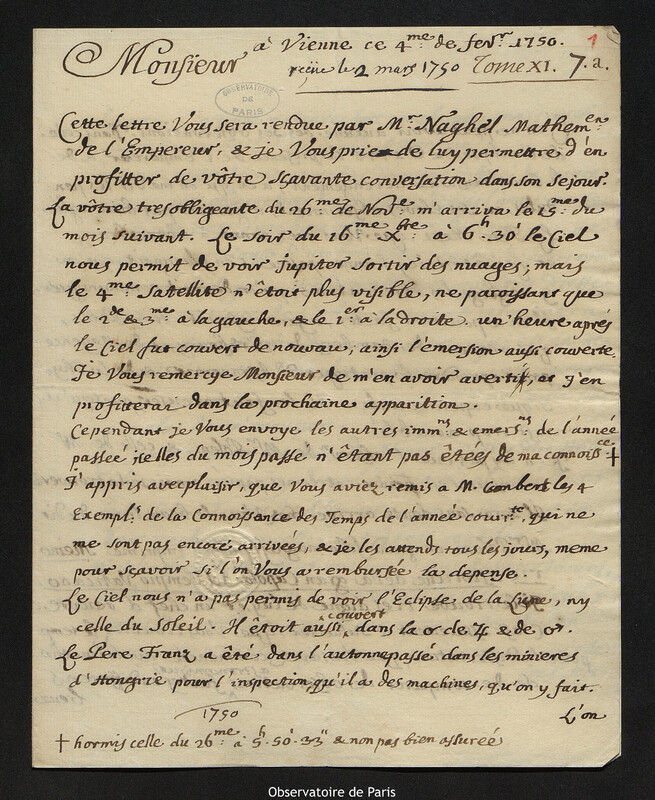 à Vienne ce 4.me de fevr. 1750. 1
Monsieur reçüe le 2 mars 1750 Tome XI. 7. a.
OBSERVATOIRE DE PARIS
Cette lettre Vous sera rendue par Mr. Naghel Mathem.en
de l'Empereur, & je Vous prie de luy permettre d'en
profitter de vôtre sçavante conversation dans son sejour.
La vôtre tresobligeante du 26.me de Nov.e m'arriva le 15.me du
mois suivant. Le soir du 16.me Xbre à 6.h 30' le Ciel
nous permit de voir Jupiter sortir des nuages; mais
le 4.me Satellite n'êtoit plus visible, ne paroissant que
le 2.de & 3.me à la gauche, & le 1.er à la droite. un heure aprés
le Ciel fut couvert de nouvau; ainsi l'emersion aussi couverte.
Je Vous remercye Monsieur de m'en avoir averti, et J'en
profitterai dans la prochaine apparition.
Cependant je Vous envoye les autres imm.ns & emers.ns de l'année
passeé; celles du mois passé n'êtant pas êtées de ma connoiss.ce †
J'appris avec plaisir, que Vous aviez remis a M. Combert les 4
Exempl.s de la Connoissance des Temps de l'année cour.te, qui ne
me sont pas encore arrivées, & je les attends tous les jours, meme
pour sçavoir si l'on Vous a rembursée la depense.
Le Ciel nous n'a pas permis de voir l'Eclipse de la Lune, ny
celle du Soleil. Il êtoit aussi couvert dans la ☌ de ♃ & de ♂.
Le Pere Franz a êté dans l'autonne passé dans les minieres
d'Hongrie pour l'inspection, qu'il a des machines, qu'on y fait.
L'on
1750
† hormis celle du 26.me à 5.h 50.' 33." & non pas bien assurée
Observatoire de Paris